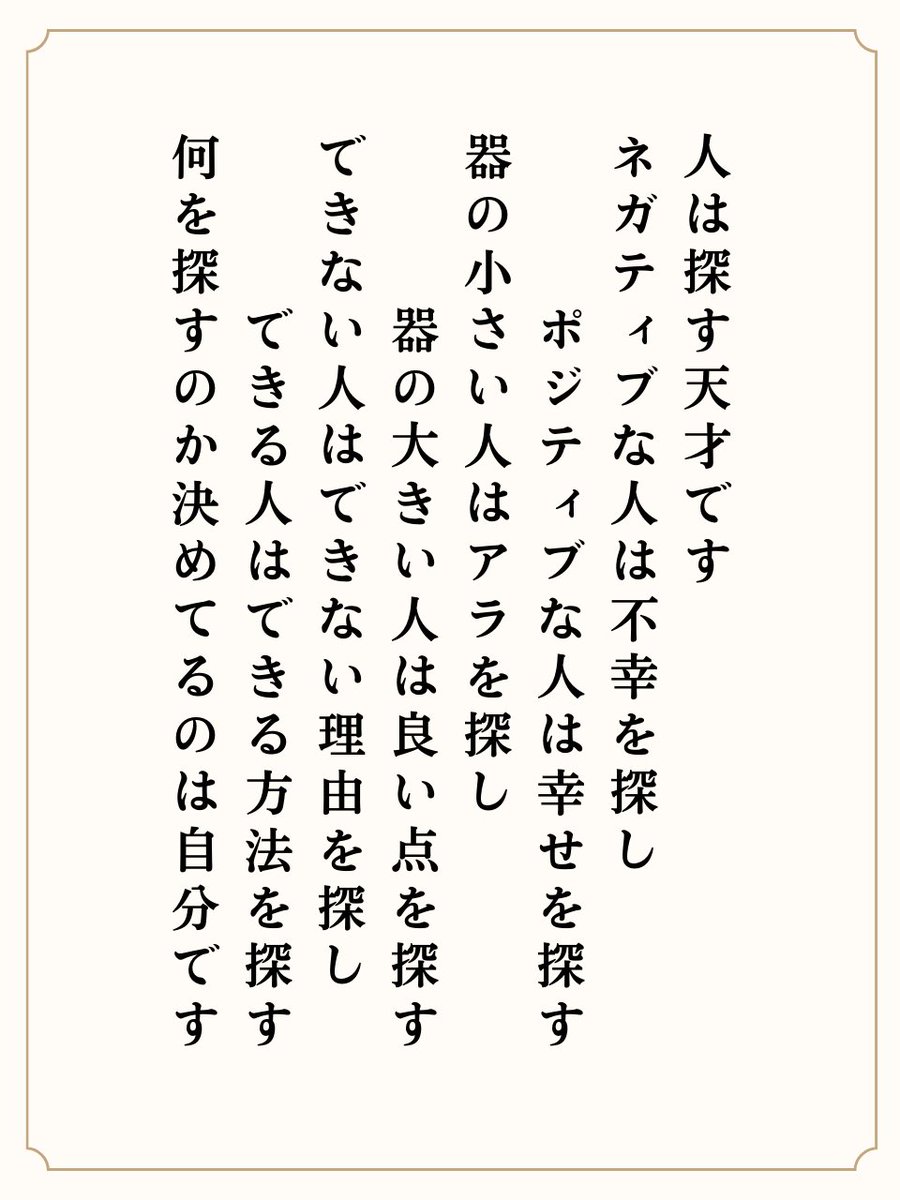 人は探す天才です
ネガティブな人は不幸を探し
ポジティブな人は幸せを探す
器の小さい人はアラを探し
器の大きい人は良い点を探す
できない人はできない理由を探し
できる人はできる方法を探す
何を探すのか決めてるのは自分です